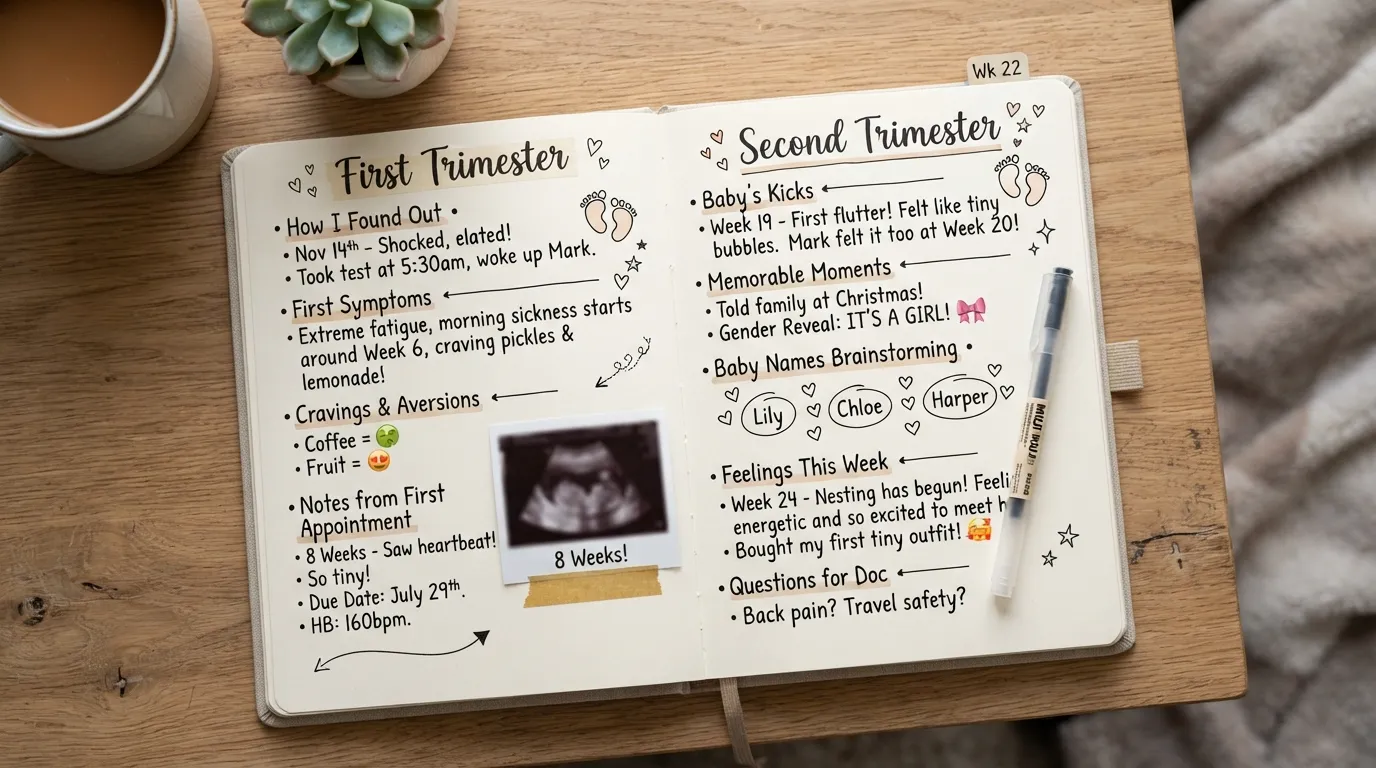 Wk 22
First Trimester
• How I Found Out •
• Nov 14th - Shocked, elated!
• Took test at 5:30am, woke up Mark.
• First Symptoms
• Extreme fatigue, morning sickness starts
around Week 6, craving pickles &
lemonade!
• Cravings & Aversions
• Coffee = 🤢
• Fruit = 😍
• Notes from First
Appointment
• 8 Weeks - Saw heartbeat!
• So tiny!
• Due Date: July 29th.
• HB: 160bpm.
8 Weeks!
Second Trimester
• Baby's Kicks
• Week 19 - First flutter! Felt like tiny
bubbles. Mark felt it too at Week 20!
• Memorable Moments
• Told family at Christmas!
• Gender Reveal: IT'S A GIRL! 🎀
• Baby Names Brainstorming •
Lily
Chloe
Harper
• Feelings This Week
• Week 24 - Nesting has begun!
energetic and so excited to meet
• Bought my first tiny outfit! 🥰
• Questions for Doc
• Back pain? Travel safety?